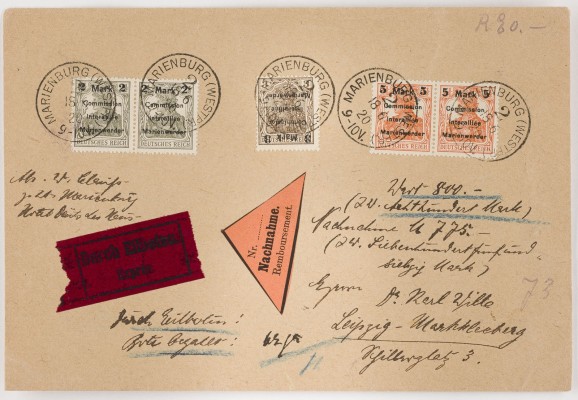 R 80.-
MARIENBURG (WESTPR)
2 Mark 2
Commission
Interalliée
Marienwerder
DEUTSCHES REICH
2 Mark 2
Commission
Interalliée
Marienwerder
DEUTSCHES REICH
MARIENBURG (WESTPR)
MARIENBURG (WEST
3 Mark 3
Commission
Interalliée
Marienwerder
MARIENBURG (WEST
10V-6
5 Mark 5
Commission
Interalliée
Marienwerder
DEUTSCHES REICH
5 Mark 5
Commission
Interalliée
Marienwerder
DEUTSCHES REICH
Abs. V.
Marienburg
Hotel
Durch Eilboten.
Nr.
Nachnahme.
Remboursement.
Wert 800.-
(I.W. Achthundert Mark)
Nachnahme M 775.-
(I.W. Siebenhundertfünfund-
siebzig Mark)
Herrn
Dr. Karl Wille
Leipzig-Markkleeberg
Schillerplatz 3.
73
Durch Eilboten!
Bote bezahlt!